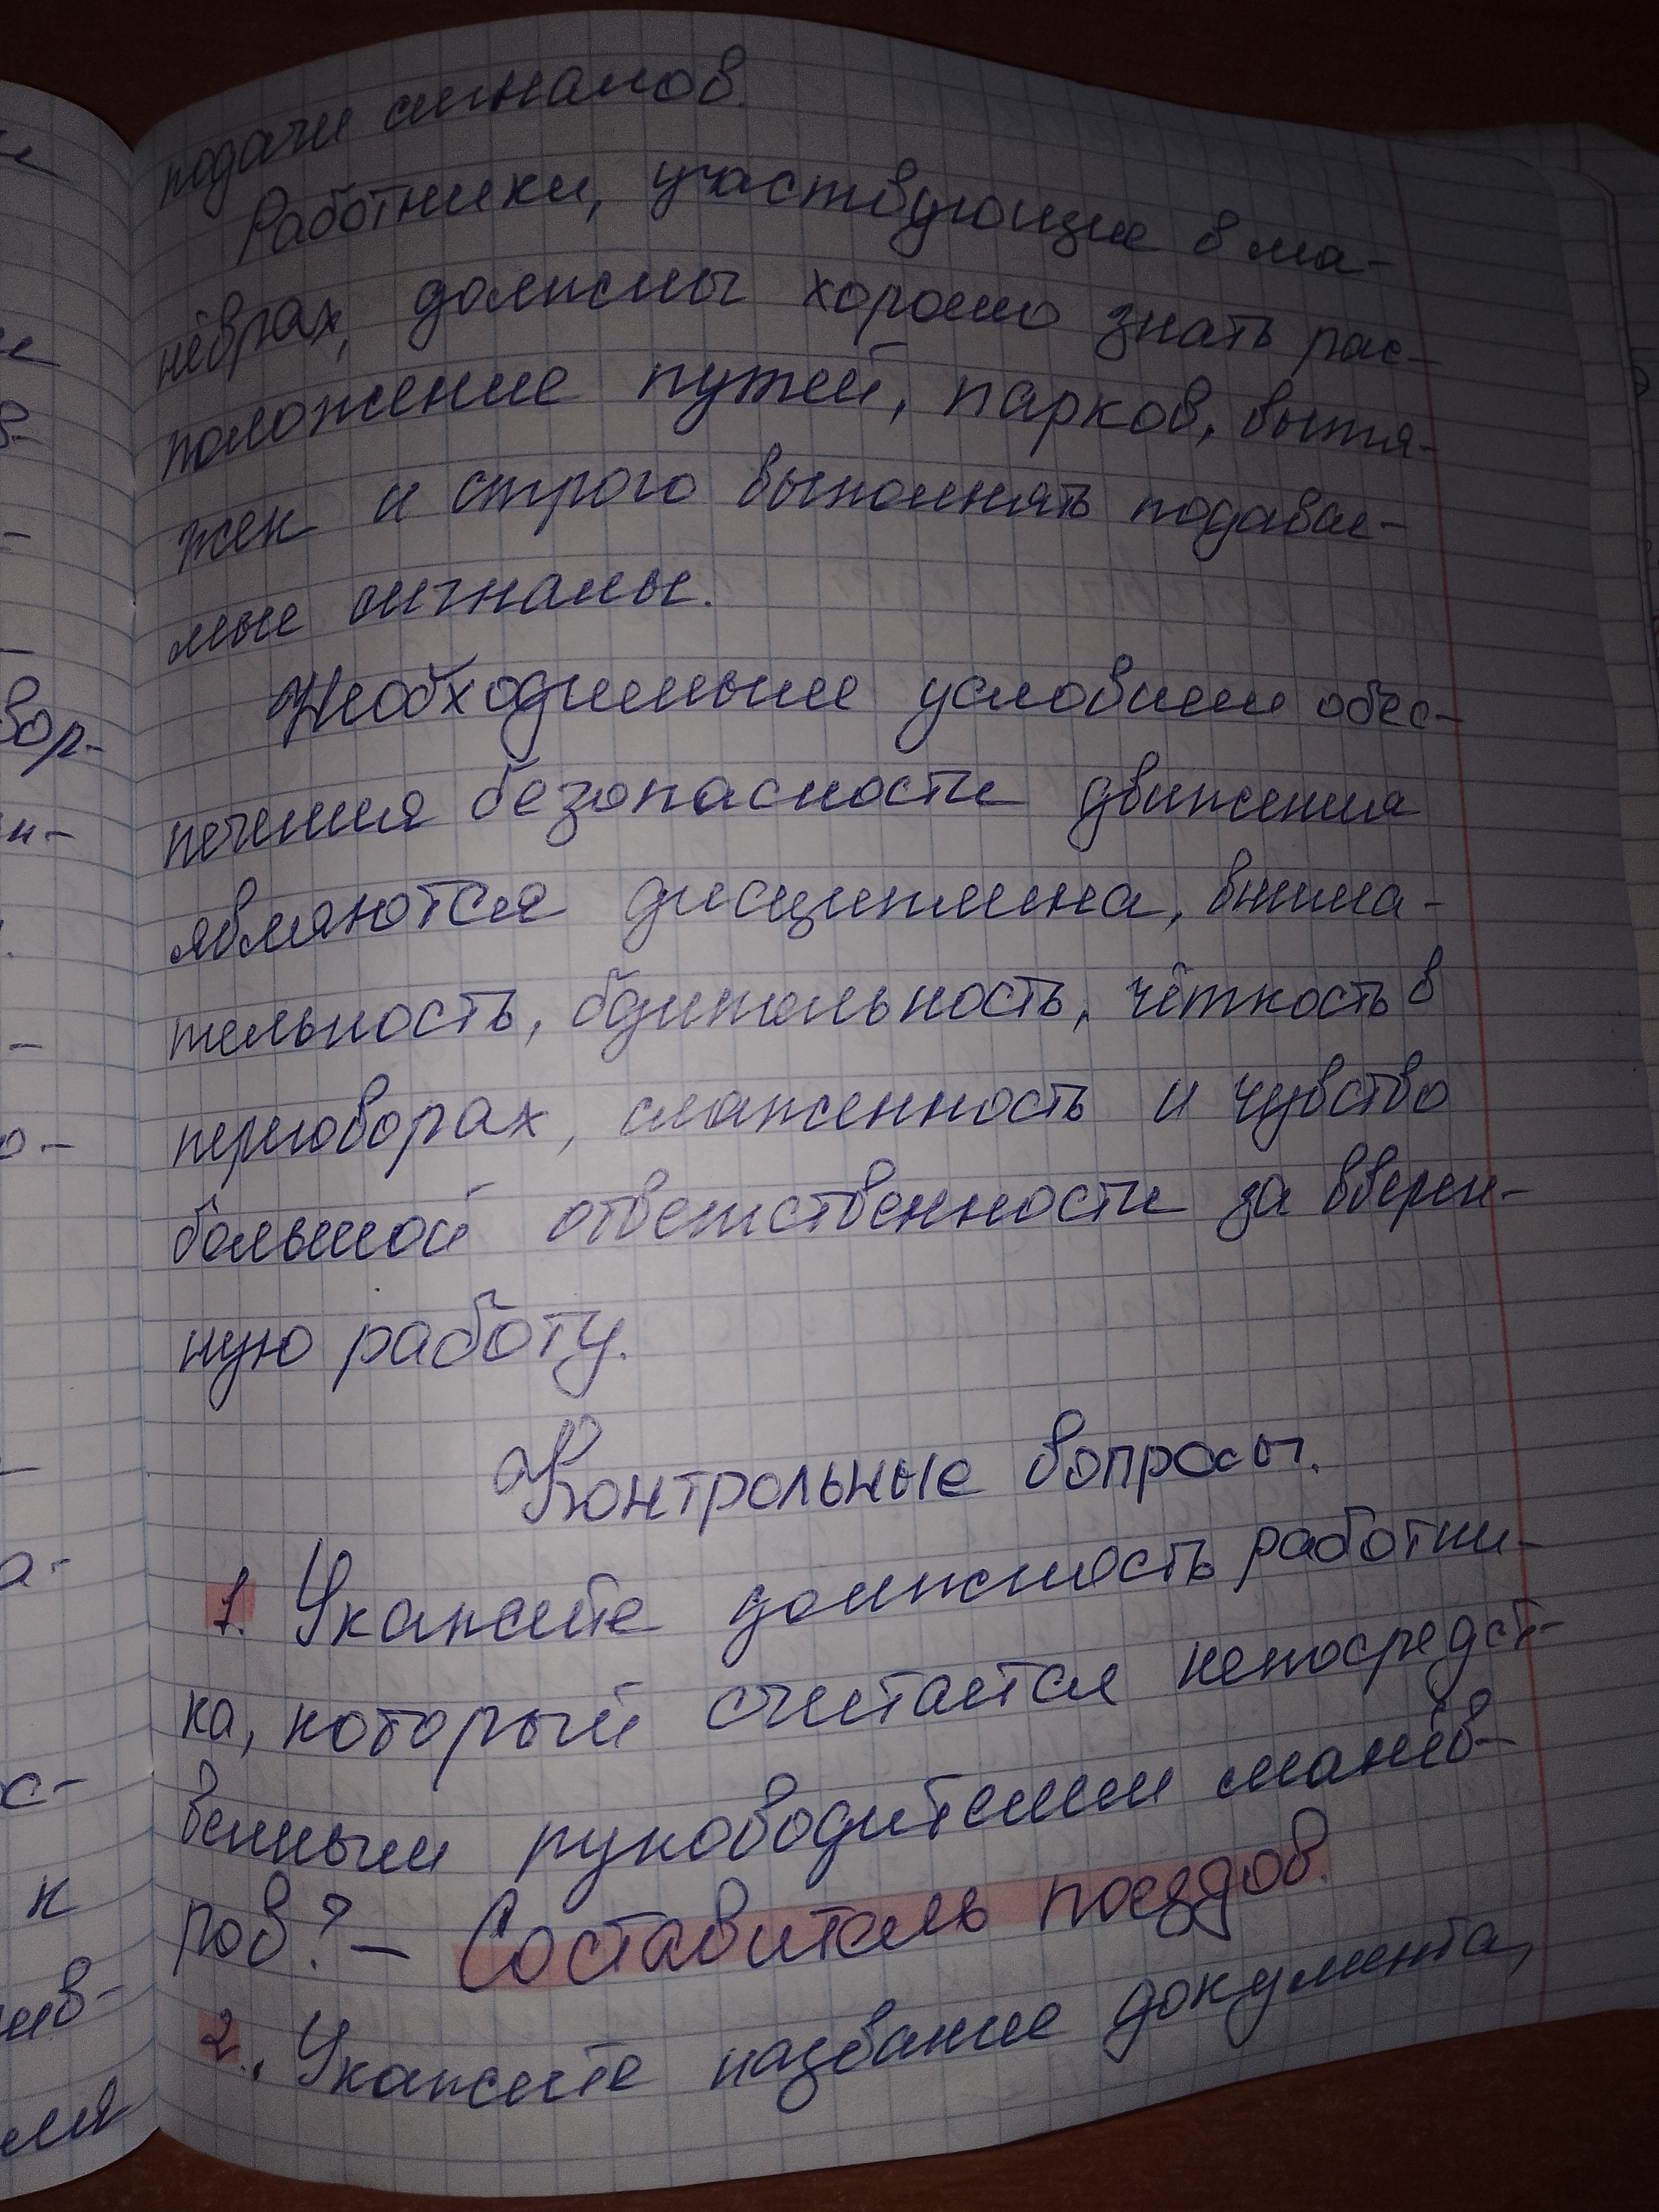 подачи сигналов.
Работники, участвующие в ма-
нёврах, должны хорошо знать рас-
положение путей, парков, вытя-
жек и строго выполнять подавае-
мые сигналы.
Необходимым условием обес-
печения безопасности движения
являются дисциплина, внима-
тельность, бдительность, чёткость в
переговорах, слаженность и чувство
большой ответственности за вверен-
ную работу.
Контрольные вопросы.
1. Укажите должность работни-
ка, который считается непосредст-
венным руководителем манёв-
ров? – Составитель поездов.
2. Укажите название документа,
вор-
н-
о-
а-
с-
к
ив-
ля